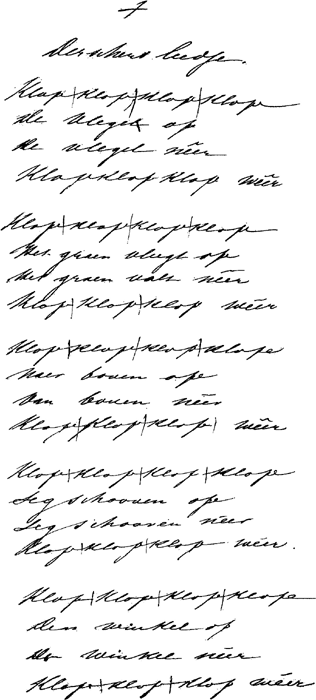 †
Derschers liedje.
Klop | Klop | Klop | Klop
De vlegel op
De vlegel nêer
Klop Klop Klop wêer
Klop | Klop | Klop | Klop
Het graen vliegt op
Het graen valt nêer
Klop | Klop | Klop wêer
Klop | Klop | Klop | Klop
Naer boven op
Van boven nêer
Klop | Klop | Klop | wêer
Klop | Klop | Klop | Klop
Leg schooven op
Leg schooven neer
Klop | Klop | Klop wêer.
Klop | Klop | Klop | Klop
Den winkel op
De winkel nêer
Klop | Klop | Klop wêer